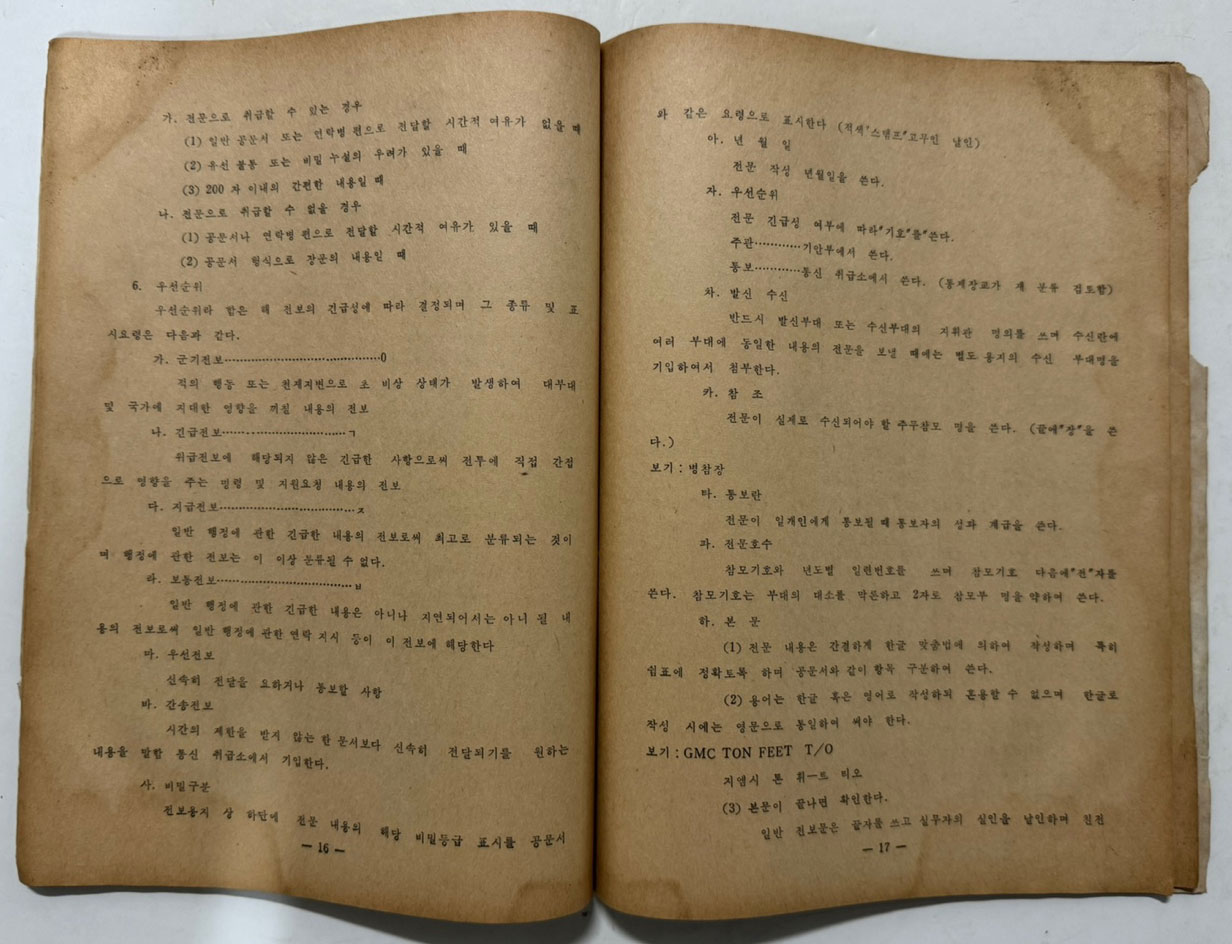 가. 전문으로 취급할 수 있는 경우
(1) 일반 공문서 또는 연락병 편으로 전달할 시간적 여유가 없을 때
(2) 유선 불통 또는 비밀 누설의 우려가 있을 때
(3) 200 자 이내의 간편한 내용일 때
나. 전문으로 취급할 수 없을 경우
(1) 공문서나 연락병 편으로 전달할 시간적 여유가 있을 때
(2) 공문서 형식으로 장문의 내용일 때
6. 우선순위
우선순위라 함은 매 전보의 긴급성에 따라 결정되며 그 종류 및 표
시요령은 다음과 같다.
가. 군기전보……………………………………0
적의 행동 또는 천재지변으로 초 비상 상태가 발생하여 대부대
및 국가에 지대한 영향을 끼칠 내용의 전보
나. 긴급전보……………………………ㄱ
위급전보에 해당되지 않은 긴급한 사항으로써 전투에 직접 간접
으로 영향을 주는 명령 및 지원요청 내용의 전보
다. 지급전보………………………………ㅈ
일반 행정에 관한 긴급한 내용의 전보로써 최고로 분류되는 것이
며 행정에 관한 전보는 이 이상 분류될 수 없다.
라. 보통전보………………………………ㅂ
일반 행정에 관한 긴급한 내용은 아니나 지연되어서는 아니 될 내
용의 전보로써 일반 행정에 관한 연락 지시 등이 이 전보에 해당한다
마. 우선전보
신속히 전달을 요하거나 통보할 사항
바. 간송전보
시간의 제한을 받지 않는 한 문서보다 신속히 전달되기를 원하는
내용을 말함 통신 취급소에서 기입한다.
사. 비밀구분
전보용지 상 하단에 전문 내용의 해당 비밀등급 표시를 공문서
— 16 —
와 같은 요령으로 표시한다 (적색"스탬프"고무인 날인)
아. 년 월 일
전문 작성 년월일을 쓴다.
자. 우선순위
전문 긴급성 여부에 따라"기호"를"쓴다.
주관…………기안부에서 쓴다.
통보…………통신 취급소에서 쓴다. (통제장교가 재 분류 검토함)
차. 발신 수신
반드시 발신부대 또는 수신부대의 지휘관 명의를 쓰며 수신란에
여러 부대에 동일한 내용의 전문을 보낼 때에는 별도 용지의 수신 부대명을
기입하여서 첨부한다.
카. 참 조
전문이 실제로 수신되어야 할 주무참모 명을 쓴다. (끝에"장"을 쓴
다.)
보기 : 병참장
타. 통보란
전문이 일개인에게 통보될 때 통보자의 성과 계급을 쓴다.
파. 전문호수
참모기호와 년도별 일련번호를 쓰며 참모기호 다음에"전"자를
쓴다. 참모기호는 부대의 대소를 막론하고 2자로 참모부 명을 약하여 쓴다.
하. 본 문
(1) 전문 내용은 간결하게 한글 맞춤법에 의하여 작성하며 특히
쉼표에 정확도록 하며 공문서와 같이 항목 구분하여 쓴다.
(2) 용어는 한글 혹은 영어로 작성하되 혼용할 수 없으며 한글로
작성 시에는 영문으로 통일하여 써야 한다.
보기 : GMC TON FEET T/O
지엠시 톤 휘―트 티오
(3) 본문이 끝나면 확인한다.
일반 전보문은 끝자를 쓰고 실무자의 실인을 날인하며 친전
— 17 —